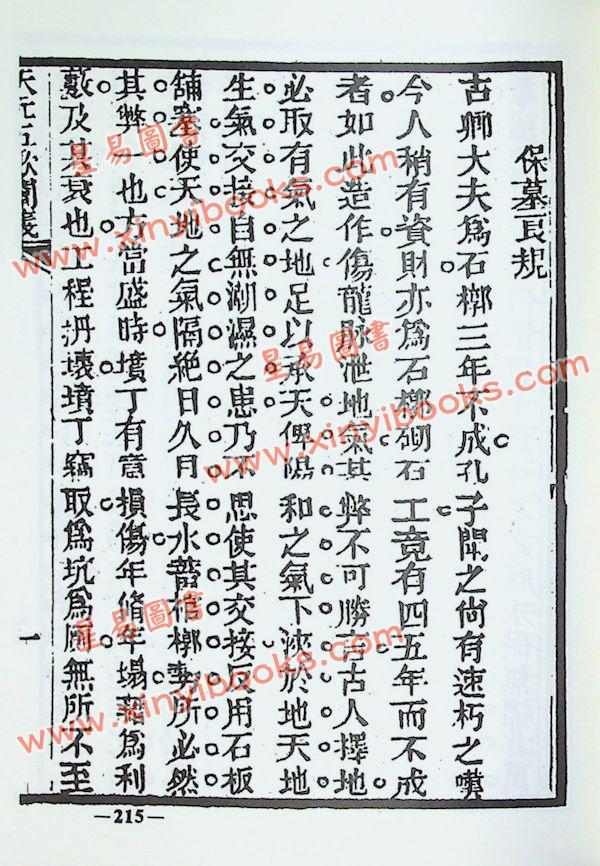 保墓良規
古卿大夫爲石槨三年不成孔子聞之尚有速朽之嘆
今人稍有資財亦爲石槨砌石工竟有四五年而不成
者如此造作傷龍脉泄地氣其弊不可勝言古人擇地
必取有氣之地足以承天俾陽和之氣下浹於地天地
生氣交接自無潮濕之患乃不思使其交接反用石板
舖塞使天地之氣隔絕日久月長水蓄棺槨勢所必然
其弊一也方當盛時墳丁有意損傷年脩年塌藉爲利
藪及其衰也工程坍壞墳丁竊取爲坑爲廁無所不至
一
—215—
星易圖書
www.xinyibooks.com
星易圖書
www.xinyibooks.com
星易圖書
www.xinyibooks.com